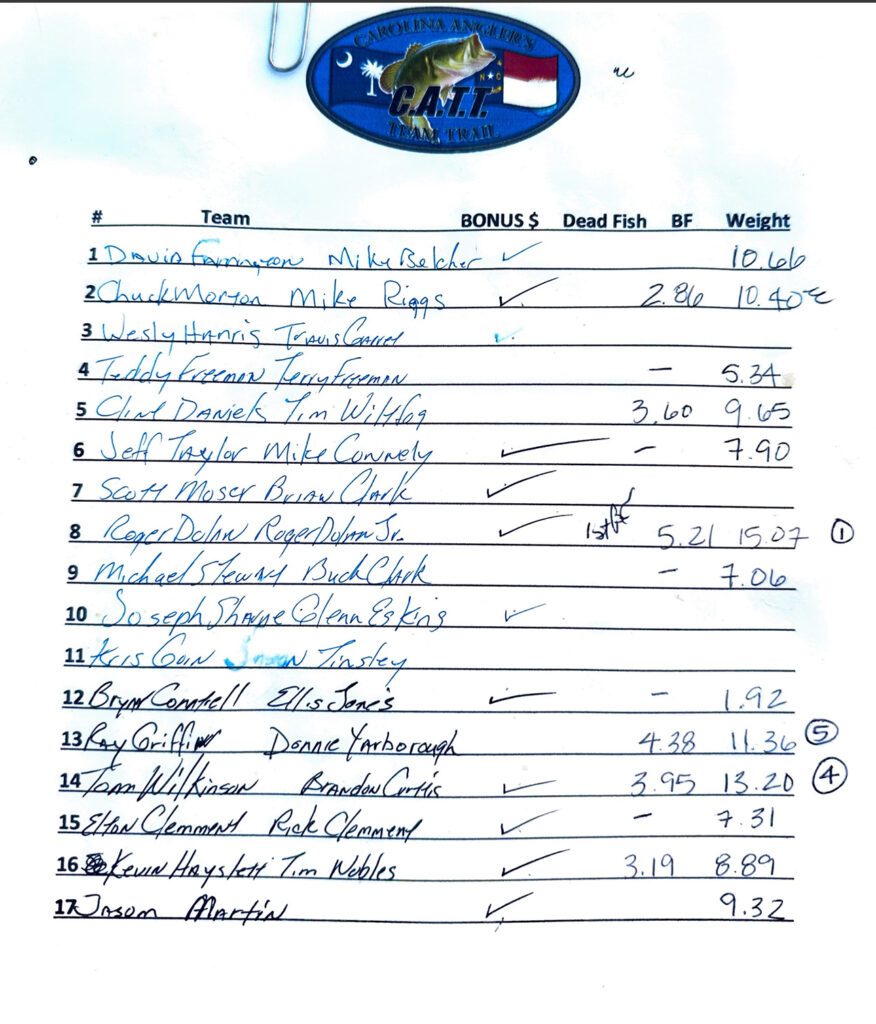 CAROLINA ANGLER'S
N C
C.A.T.T.
TEAM TRAIL
# Team BONUS $ Dead Fish BF Weight
1 David Farrington Mike Belcher ✓ 10.66
2 Chuck Morton Mike Riggs ✓ 2.86 10.40
3 Wesly Harris Travis ✓
4 Teddy Freemon Terry Freemon — 5.34
5 Clint Daniels Tim Wiltfog 3.60 9.65
6 Jeff Taylor Mike Connely ✓ - 7.90
7 Scott Moser Brian Clark ✓
8 Roger Dolan Roger Dolan Jr. ✓ 1st BF 5.21 15.07 ①
9 Michael Stewart Buck Clark - 7.06
10 Joseph Shayne Glenn Eskins ✓
11 Kris Goin Jason Tinsley
12 Ellis Jones ✓ - 1.92
13 Ray Griffin Donnie Yarborough 4.38 11.36 ⑤
14 Tom Wilkinson Brandon Curtis ✓ 3.95 13.20 ④
15 Elton Clemment Rick Clemment ✓ - 7.31
16 Kevin Hayslett Tim Nobles ✓ 3.19 8.89
17 Jasom Martin ✓ 9.32